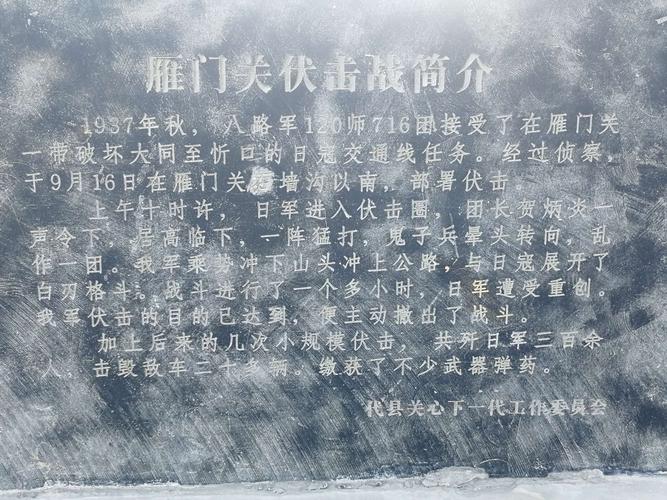 雁门关伏击战简介
1937年秋，八路军120师716团接受了在雁门关
一带破坏大同至忻口的日寇交通线任务。经过侦察，
于9月16日在雁门关 墙沟以南，部署伏击。
上午十时许，日军进入伏击圈，团长贺炳炎一
声令下，居高临下，一阵猛打，鬼子兵晕头转向，乱
作一团。我军乘势冲下山头冲上公路，与日寇展开了
白刃格斗。战斗进行了一个多小时，日军遭受重创。
我军伏击的目的已达到，便主动撤出了战斗。
加上后来的几次小规模伏击，共歼日军三百余
人，击毁敌车二十多辆。缴获了不少武器弹药。
代县关心下一代工作委员会